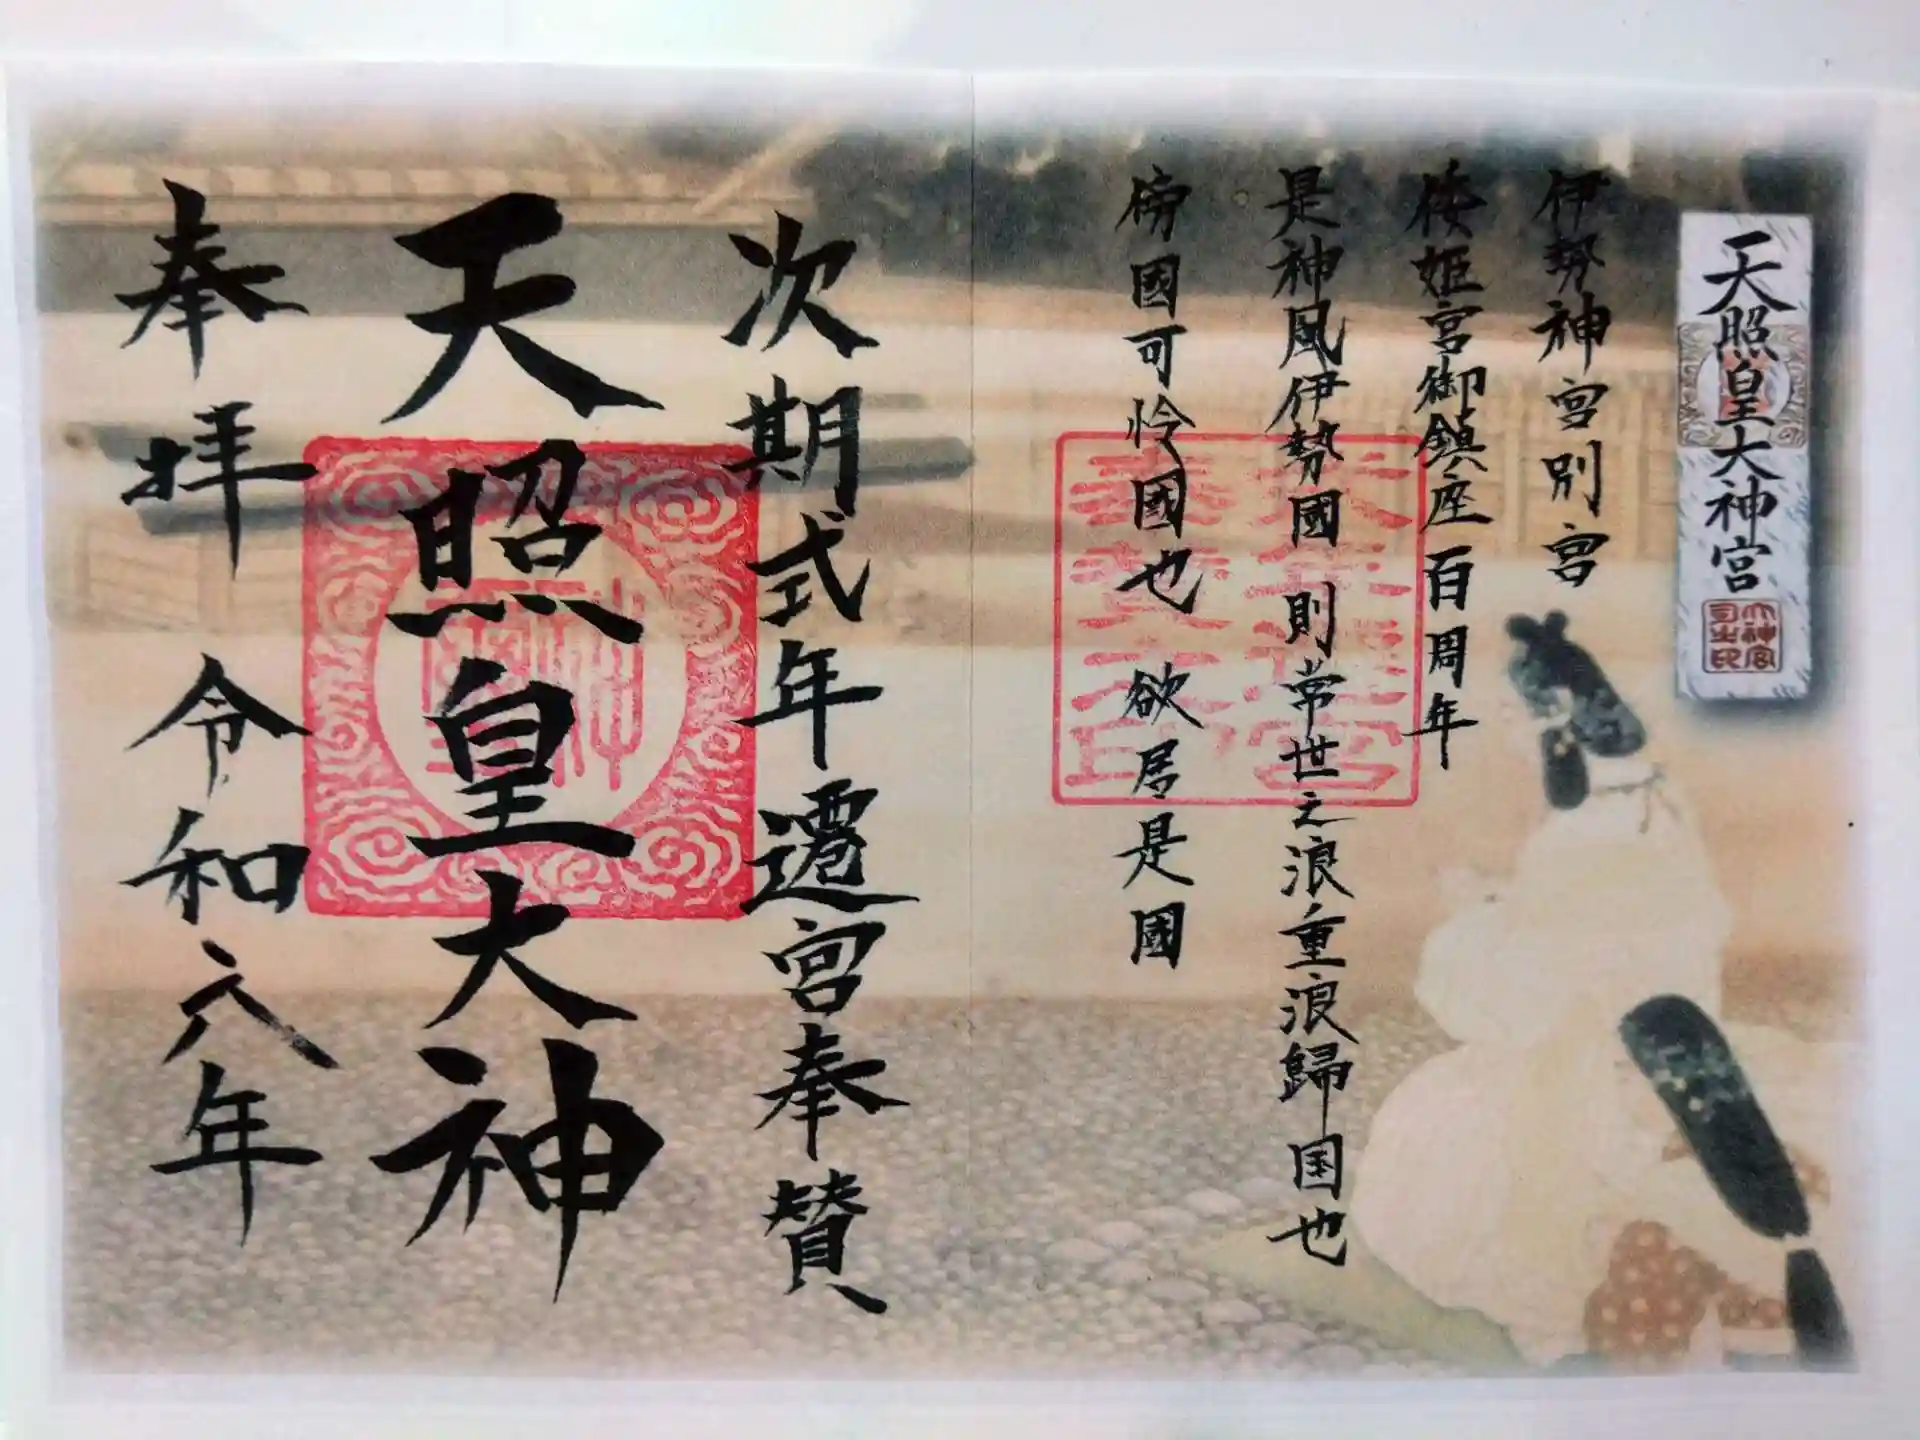 天照皇大神宮
大神宮司之印
伊勢神宮別宮
倭姫宮御鎮座百周年
是神風伊勢國 則常世之浪重浪歸国也
傍國可怜國也 欲居是國
次期式年遷宮奉賛
天照皇大神
奉拝 令和六年